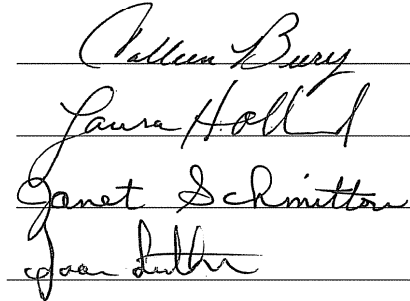 Colleen Bury
Laura Holland
Janet Schmitton
Joan